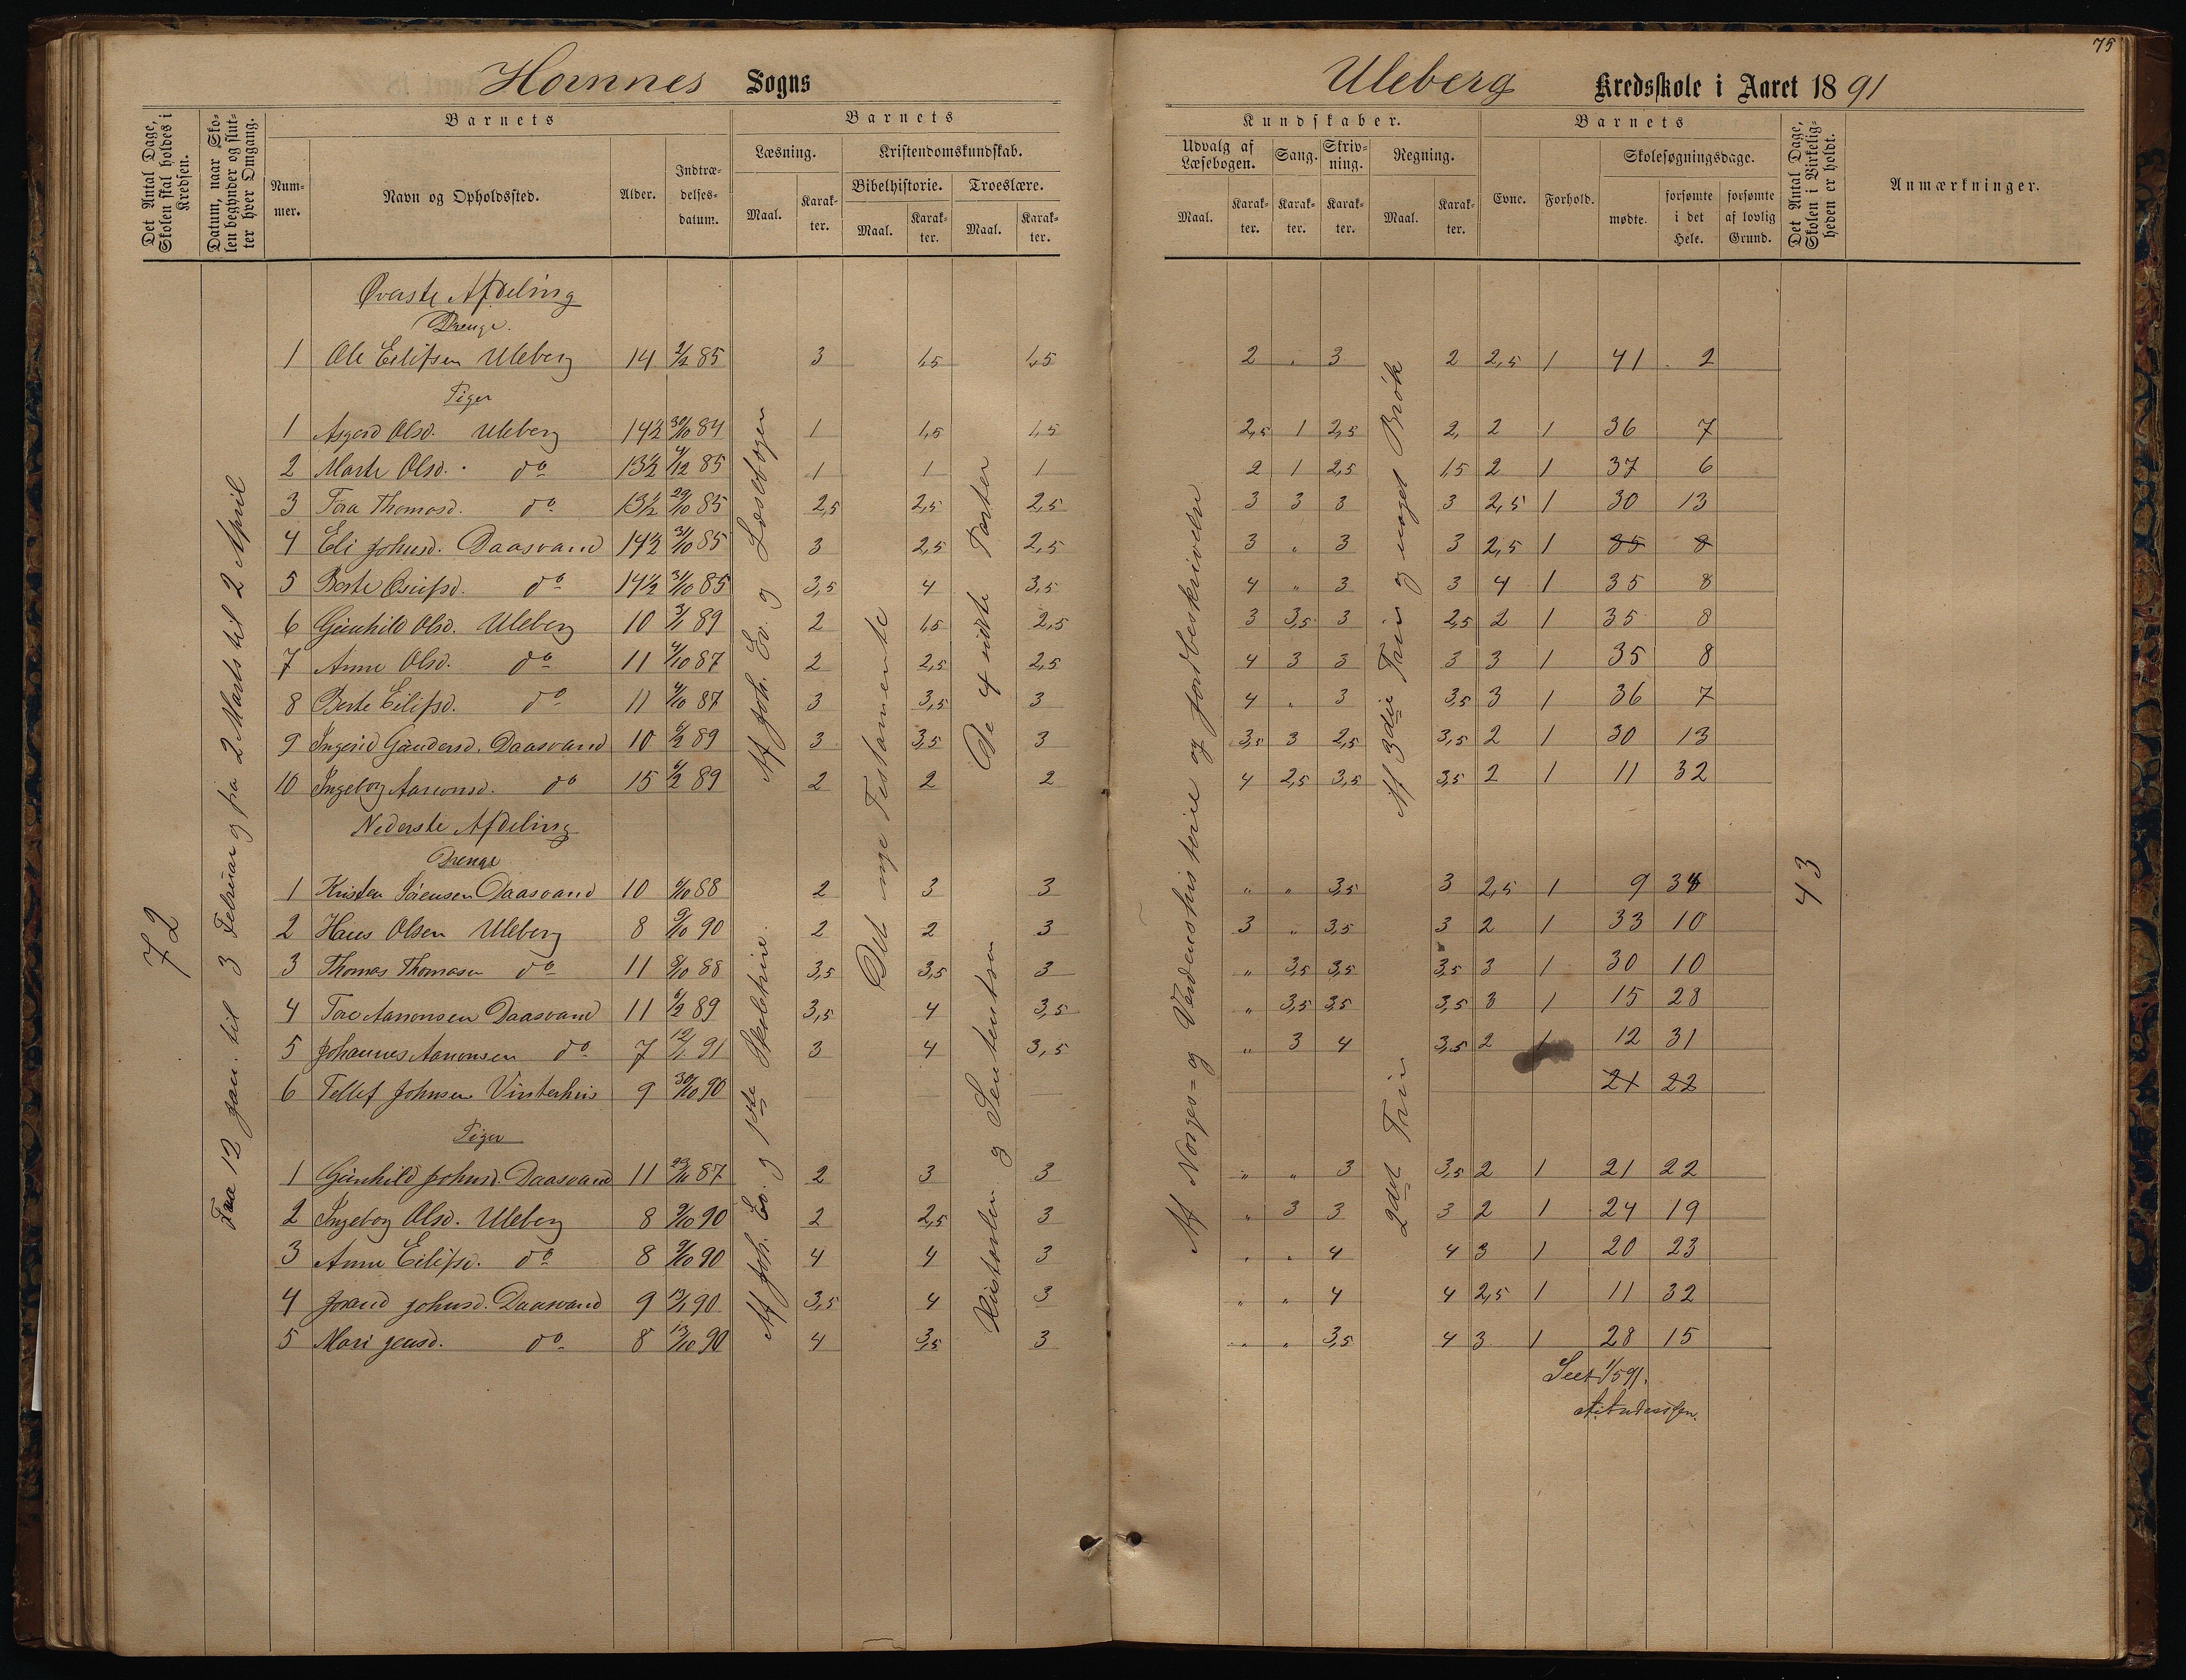 75
Hornnes Sogns
Uleberg Kredsskole i Aaret 1891
Det Antal Dage, Skolen skal holdes i Kredsen.
Datum, naar Skolen begynder og slutter hver Omgang.
Barnets
Nummer.
Navn og Opholdssted.
Alder.
Indtrædelsesdatum.
Barnets
Læsning.
Maal.
Karakter.
Kristendomskundskab.
Bibelhistorie.
Maal.
Karakter.
Troeslære.
Maal.
Karakter.
Kundskaber.
Udvalg af Læsebogen.
Maal.
Karakter.
Sang.
Karakter.
Skrivning.
Karakter.
Regning.
Maal.
Karakter.
Barnets
Evne.
Forhold.
Skolesøgningsdage.
mødte.
forsømte i det Hele.
forsømte af lovlig Grund.
Det Antal Dage, Skolen i Virkeligheden er holdt.
Anmærkninger.
72
Fra 12 Jan. til 3 Februar og fra 2 Marts til 2 April
Af Joh. Ev. og Læsebogen
Af Joh. Ev. og 1ste Skoletrin.
Det nye Testamente
De 4 sidste Parter
Historler og Sententser
Af Norges= og Verdenshistorie og Jordbeskrivelse
Af 3die Trin og noget Brøk
2det Trin
43
Øverste Afdeling
Drenge.
1 Ole Eilifsen Uleberg 14 2/2 85 3 1,5 1,5 2 " 3 2 2,5 1 41 2
Piger
1 Asgerd Olsd. Uleberg 14½ 30/10 84 1 1,5 1,5 2,5 1 2,5 2, 2 1 36 7
2 Marte Olsd. do 13½ 4/12 85 1 1 1 2 1 2,5 1,5 2 1 37 6
3 Tora Thomasd. do 13½ 29/10 85 2,5 2,5 2,5 3 3 3 3 2,5 1 30 13
4 Eli Johnsd. Daasvand 14½ 31/10 85 3 2,5 2,5 3 " 3 3 2,5 1 35 8
5 Berte do 14½ 31/10 85 3,5 4 3,5 4 " 3 3 4 1 35 8
6 Gunhild Olsd. Uleberg 10 3/1 89 2 1,5 2,5 3 3,5 3 2,5 2 1 35 8
7 Anne Olsd. do 11 4/10 87 2 2,5 2,5 4 3 3 3 3 1 35 8
8 Berte Eilifsd. do 11 4/10 87 3 3,5 3 4 " 3 3,5 3 1 36 7
9 Ingerid Gundersd. Daasvand 10 6/2 89 3 3,5 3 3,5 3 2,5 3,5 2 1 30 13
10 Ingeborg Aanonsd. do 15 6/2 89 2 2 2 4 2,5 3,5 3,5 2 1 11 32
Nederste Afdeling
Drenge
1 Kristen Sørensen Daasvand 10 6/10 88 2 3 3 " " 3,5 3 2,5 1 9 34
2 Hans Olsen Uleberg 8 9/10 90 2 2 3 3 " 3,5 3 2 1 33 10
3 Thomas Thomasen do 11 8/10 88 3,5 3,5 3 " 3,5 3,5 3,5 3 1 30 10
4 Tore Aanonsen Daasvand 11 6/2 89 3,5 4 3,5 " 3,5 3,5 3,5 3 1 15 28
5 Johannes Aanonsen do 7 12/1 91 3 4 3,5 " 3 4 3,5 2 1 12 31
6 Tellef Johnsen Vinterhus 9 30/10 90 21 22
Piger
1 Gunhild Johnsd. Daasvand 11 23/11 87 2 3 3 " " 3 3,5 2 1 21 22
2 Ingeborg Olsd. Uleberg 8 9/10 90 2 2,5 3 " 3 3 3 2 1 24 19
3 Anne Eilifsd. do 8 9/10 90 4 4 3 " " 4 4 3 1 20 23
4 Johnsd. Daasvand 9 13/1 90 3,5 4 3 " " 4 4 2,5 1 11 32
5 Mari Jensd. do 8 13/10 90 4 3,5 3 " " 3,5 4 3 1 28 15
Seet 1/5 91.